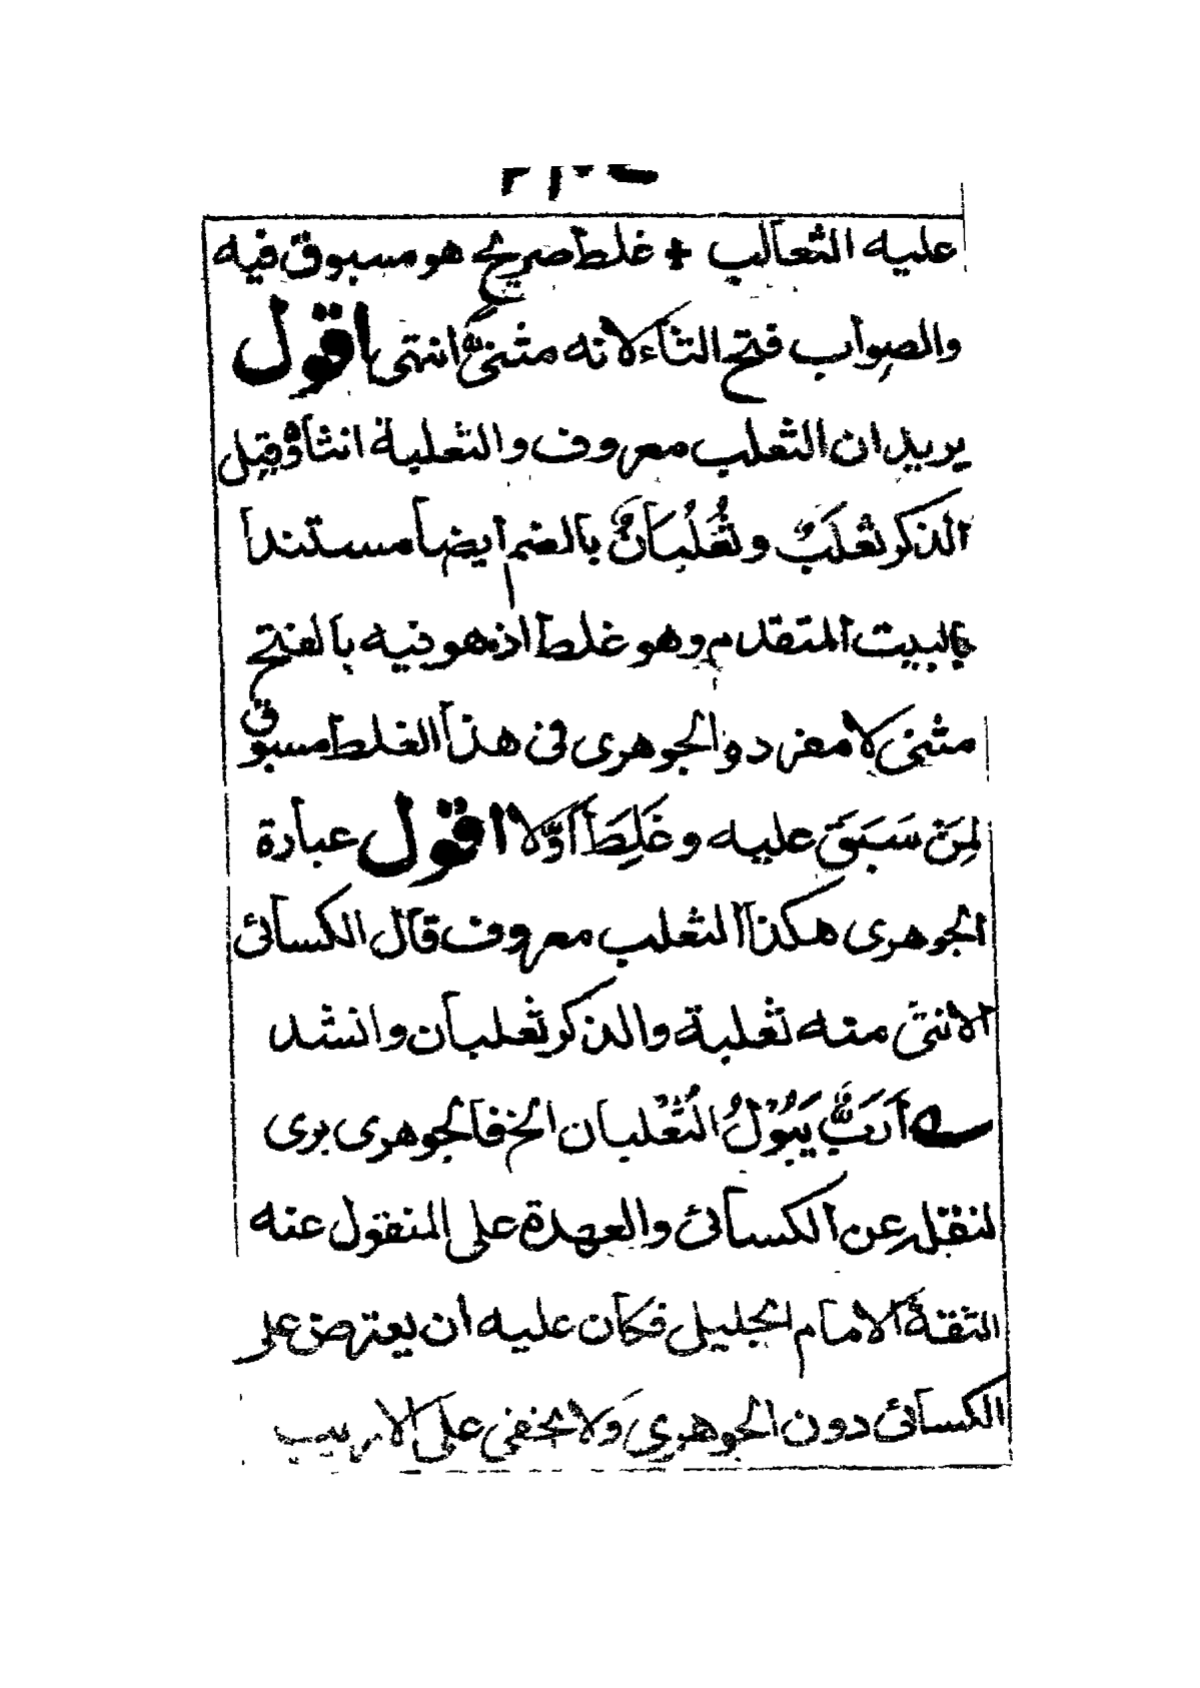 عليه الثعالب + غلط صريح هو مسبوق فيه
والصواب فتح الثاء لانه مثنىً انتهى اقول
يريد ان الثعلب معروف والثعلبة انثاه وقيل
الذكر ثعلَبٌ وثُعْلُبَانٌ بالضم ايضا مستندا
بالبيت المتقدم وهو غلط اذ هو فيه بالفتح
مثنى لا مفرد والجوهرى فى هذا الغلط مسبوق
لِمَنْ سَبَقَ عليه وغَلِطَ اَوَّلا اقول عبارة
الجوهرى هكذا الثعلب معروف قال الكسائى
الانثى منه ثعلبة والذكر ثعلبان وانشد
اَرَبٌّ يَبُوْلُ الثُّعْلبان الخ فالجوهرى برى
لنقله عن الكسائى والعهدة على المنقول عنه
الثقة الامام الجليل فكان عليه ان يعترض على
الكسائى دون الجوهرى ولا يخفى على الاريب